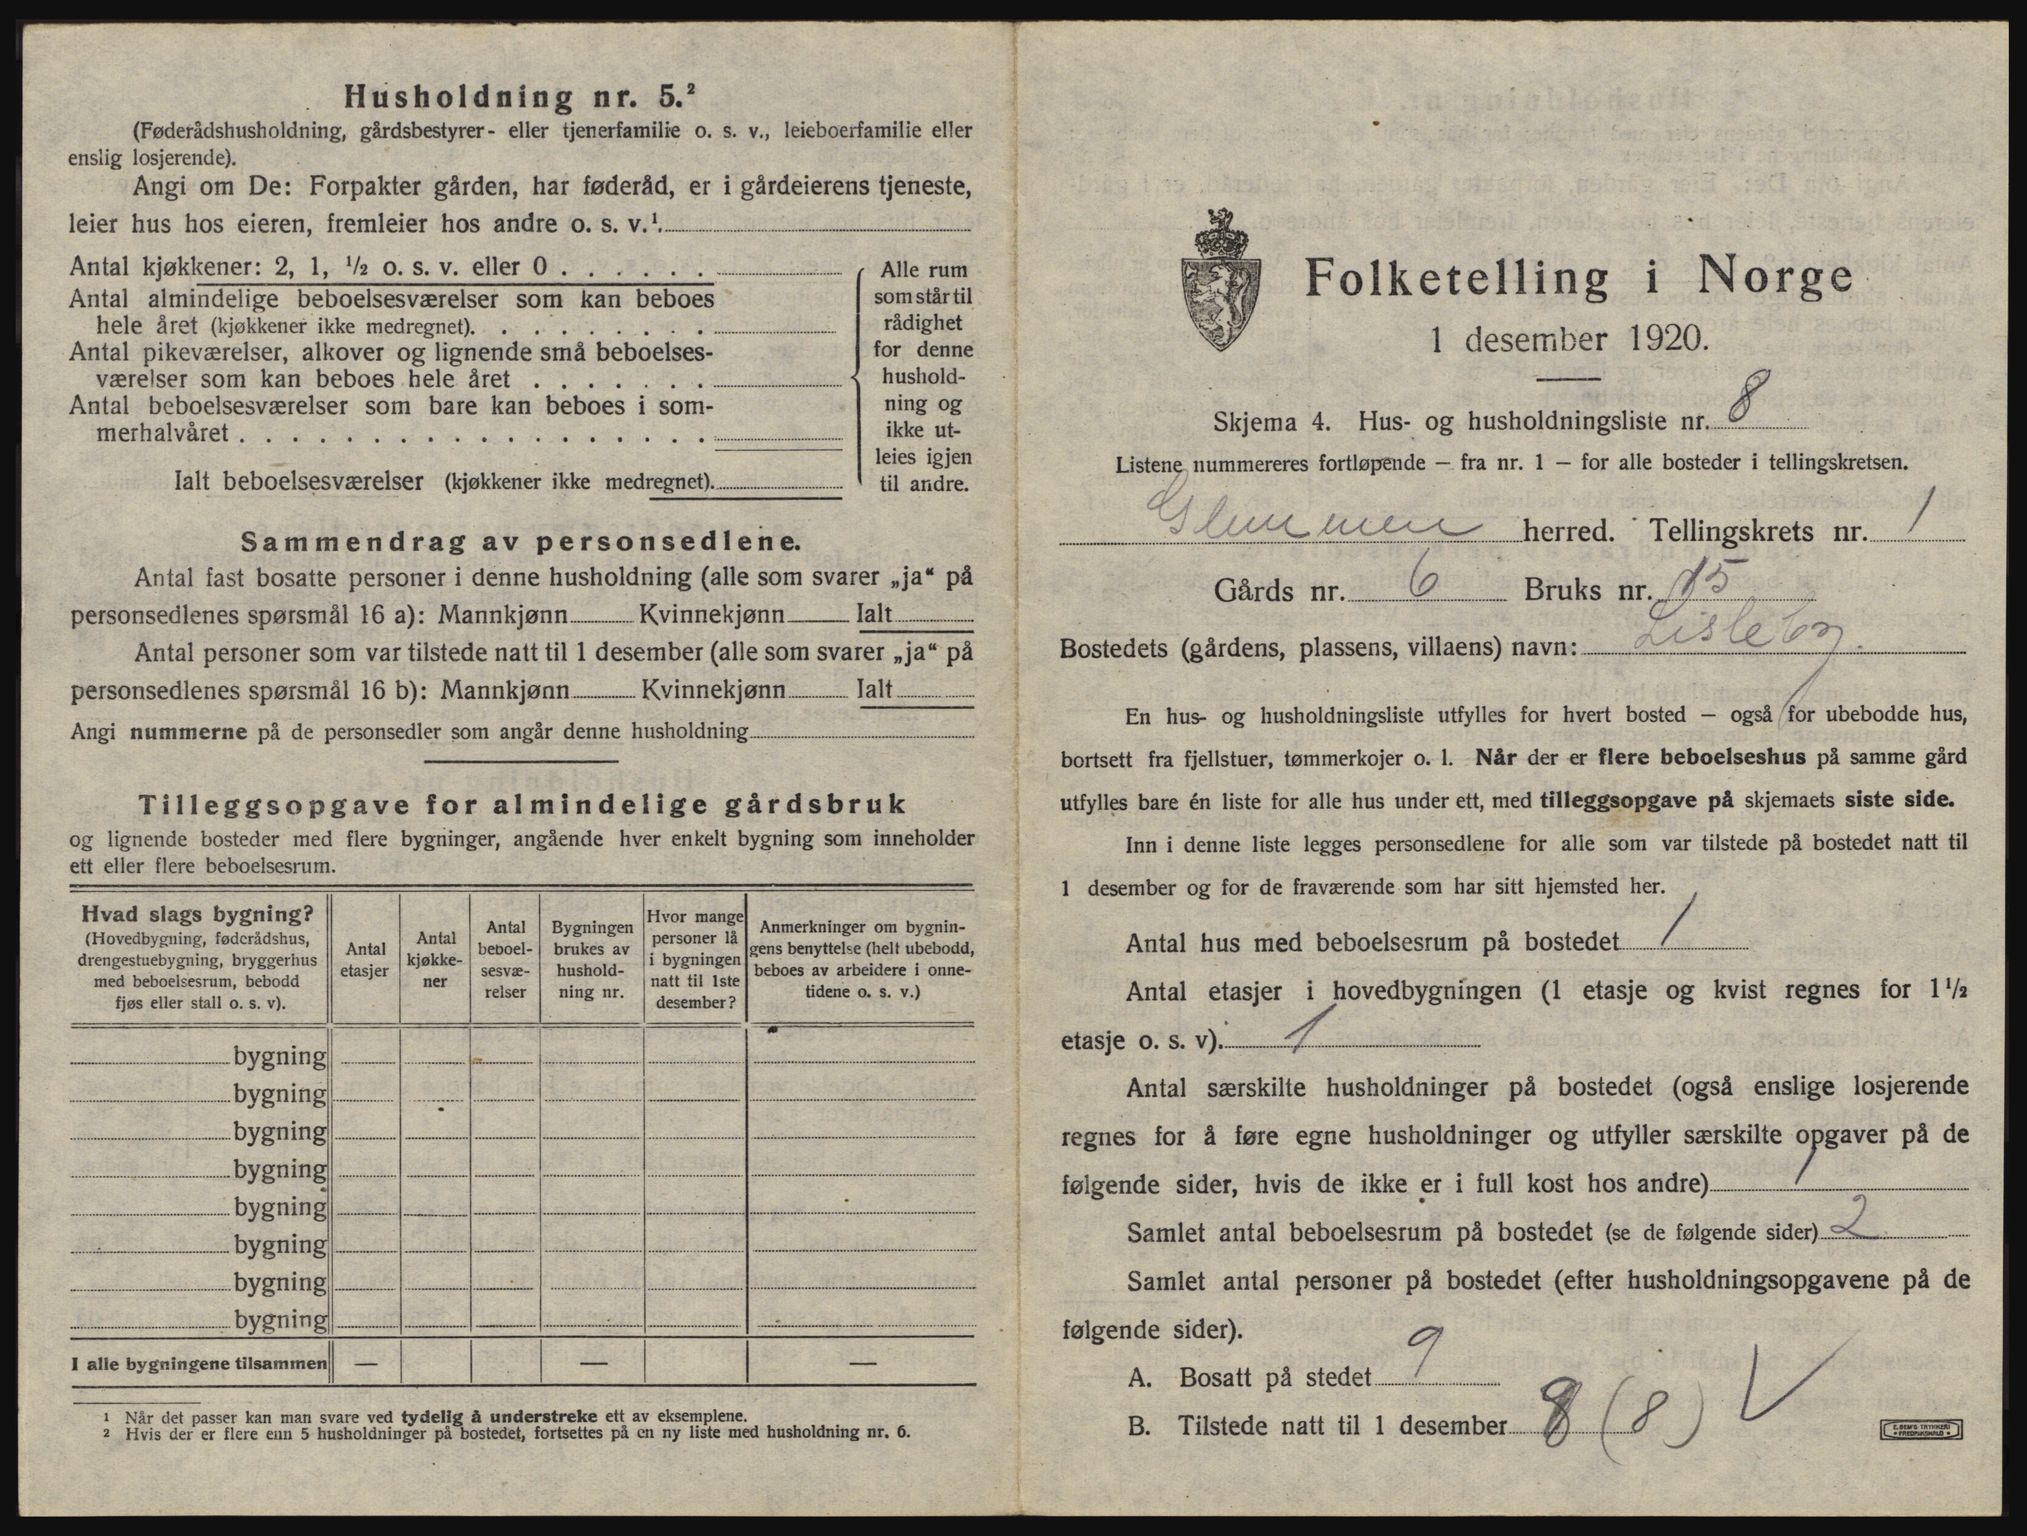 Husholdning nr. 5.²
(Føderådshusholdning, gårdsbestyrer- eller tjenerfamilie o. s. v., leieboerfamilie eller
enslig losjerende).
Angi om De: Forpakter gården, har føderåd, er i gårdeierens tjeneste,
leier hus hos eieren, fremleier hos andre o. s. v.¹.
Antal kjøkkener: 2, 1, ½ o. s. v. eller 0 . . . . . .
Antal almindelige beboelsesværelser som kan beboes
hele året (kjøkkener ikke medregnet). . . . . . . . .
Antal pikeværelser, alkover og lignende små beboelses-
værelser som kan beboes hele året . . . . . . .
Antal beboelsesværelser som bare kan beboes i som-
merhalvåret . . . . . . . . . . . . . . . . . .
Ialt beboelsesværelser (kjøkkener ikke medregnet).
Alle rum
som står til
rådighet
for denne
hushold-
ning og
ikke ut-
leies igjen
til andre.
Sammendrag av personsedlene.
Antal fast bosatte personer i denne husholdning (alle som svarer „ja“ på
personsedlenes spørsmål 16 a): Mannkjønn Kvinnekjønn Ialt
Antal personer som var tilstede natt til 1 desember (alle som svarer „ja“ på
personsedlenes spørsmål 16 b): Mannkjønn Kvinnekjønn Ialt
Angi nummerne på de personsedler som angår denne husholdning
Tilleggsopgave for almindelige gårdsbruk
og lignende bosteder med flere bygninger, angående hver enkelt bygning som inneholder
ett eller flere beboelsesrum.
Hvad slags bygning?
(Hovedbygning, føderådshus,
drengestuebygning, bryggerhus
med beboelsesrum, bebodd
fjøs eller stall o. s. v).
Antal
etasjer
Antal
kjøkke-
ner
Antal
beboel-
sesvæ-
relser
Bygningen
brukes av
hushold-
ning nr.
Hvor mange
personer lå
i bygningen
natt til 1ste
desember?
Anmerkninger om bygnin-
gens benyttelse (helt ubebodd,
beboes av arbeidere i onne-
tidene o. s. v.)
bygning
bygning
bygning
bygning
bygning
bygning
bygning
bygning
I alle bygningene tilsammen — — —
¹ Når det passer kan man svare ved tydelig å understreke ett av eksemplene.
² Hvis der er flere enn 5 husholdninger på bostedet, fortsettes på en ny liste med husholdning nr. 6.
Folketelling i Norge
1 desember 1920.
Skjema 4. Hus- og husholdningsliste nr. 8
Listene nummereres fortløpende – fra nr. 1 – for alle bosteder i tellingskretsen.
Glemmen herred. Tellingskrets nr. 1
Gårds nr. 6 Bruks nr. 15
Bostedets (gårdens, plassens, villaens) navn: Lisleby.
En hus- og husholdningsliste utfylles for hvert bosted – også for ubebodde hus,
bortsett fra fjellstuer, tømmerkojer o. l. Når der er flere beboelseshus på samme gård
utfylles bare én liste for alle hus under ett, med tilleggsopgave på skjemaets siste side.
Inn i denne liste legges personsedlene for alle som var tilstede på bostedet natt til
1 desember og for de fraværende som har sitt hjemsted her.
Antal hus med beboelsesrum på bostedet 1
Antal etasjer i hovedbygningen (1 etasje og kvist regnes for 1½
etasje o. s. v). 1
Antal særskilte husholdninger på bostedet (også enslige losjerende
regnes for å føre egne husholdninger og utfyller særskilte opgaver på de
følgende sider, hvis de ikke er i full kost hos andre) 1
Samlet antal beboelsesrum på bostedet (se de følgende sider) 2
Samlet antal personer på bostedet (efter husholdningsopgavene på de
følgende sider).
A. Bosatt på stedet 9
B. Tilstede natt til 1 desember 8 (8) V